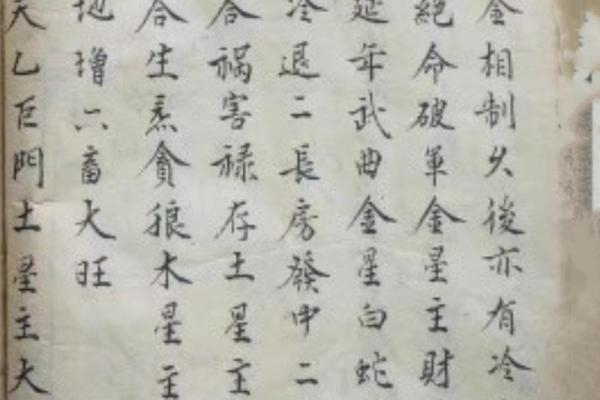 金相制久後亦有冷
絕命破軍金星主財
延年武曲金星白蛇
冷退二長房發中二
合禍害禄存土星主
合生炁貪狼木星主
地增六畜大旺
天乙巨門土星主大